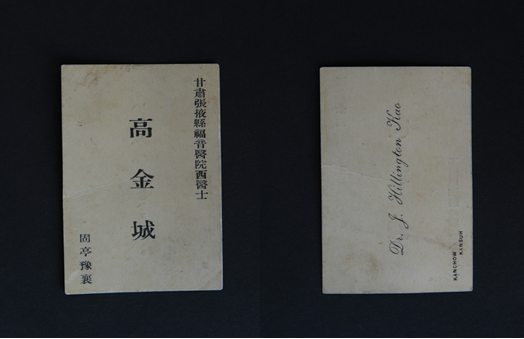 甘肅張掖縣福音醫院西醫士
高金城
固亭豫襄
Dr. J. Hillington Kao
KANCHOW
KANSUH